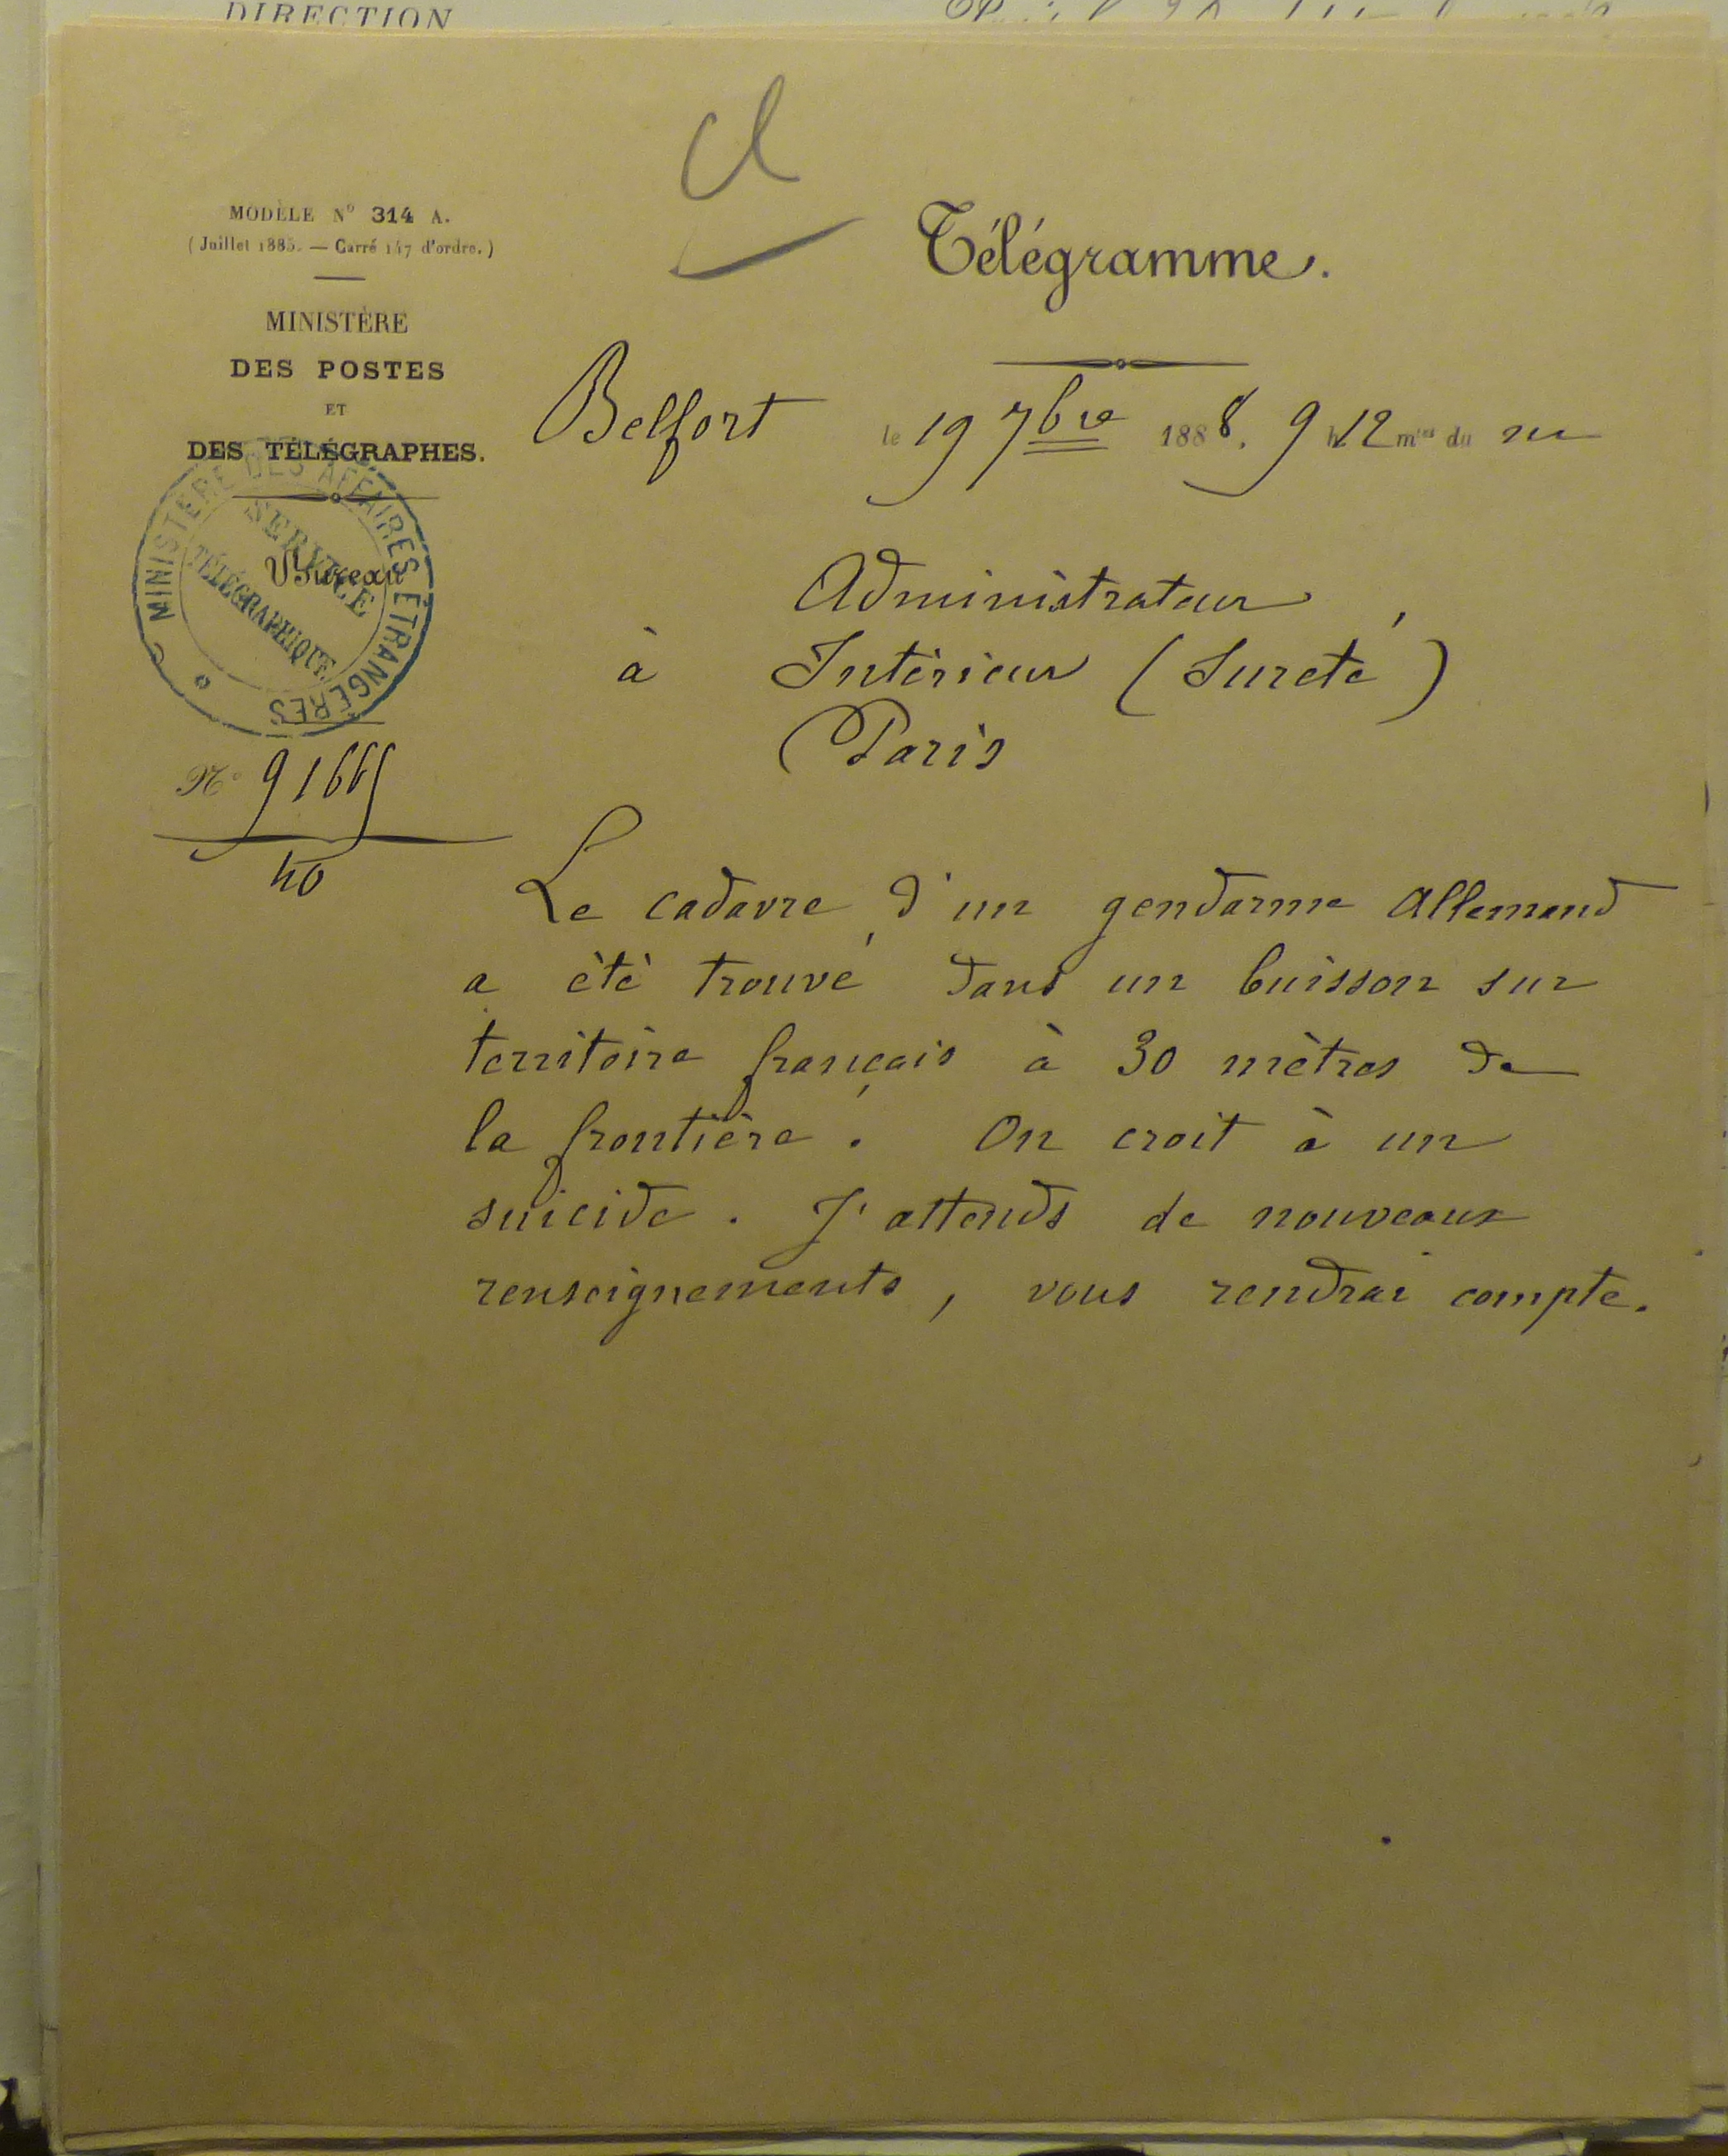 DIRECTION
Cl
MODÈLE N° 314 A.
(Juillet 1885. — Carré 147 d'ordre.)
MINISTÈRE
DES POSTES
ET
DES TÉLÉGRAPHES.
MINISTÈRE DES AFFAIRES ÉTRANGÈRES
SERVICE
TÉLÉGRAPHIQUE
Bureau
N° 91665
40
Télégramme.
Belfort le 19 7bre 1888. 9 h 12 mes du m
Administrateur
à Intérieur (Sureté)
Paris
Le cadavre d'un gendarme Allemand
a été trouvé dans un buisson sur
territoire français à 30 mètres de
la frontière. On croit à un
suicide. J'attends de nouveaux
renseignements, vous rendrai compte.